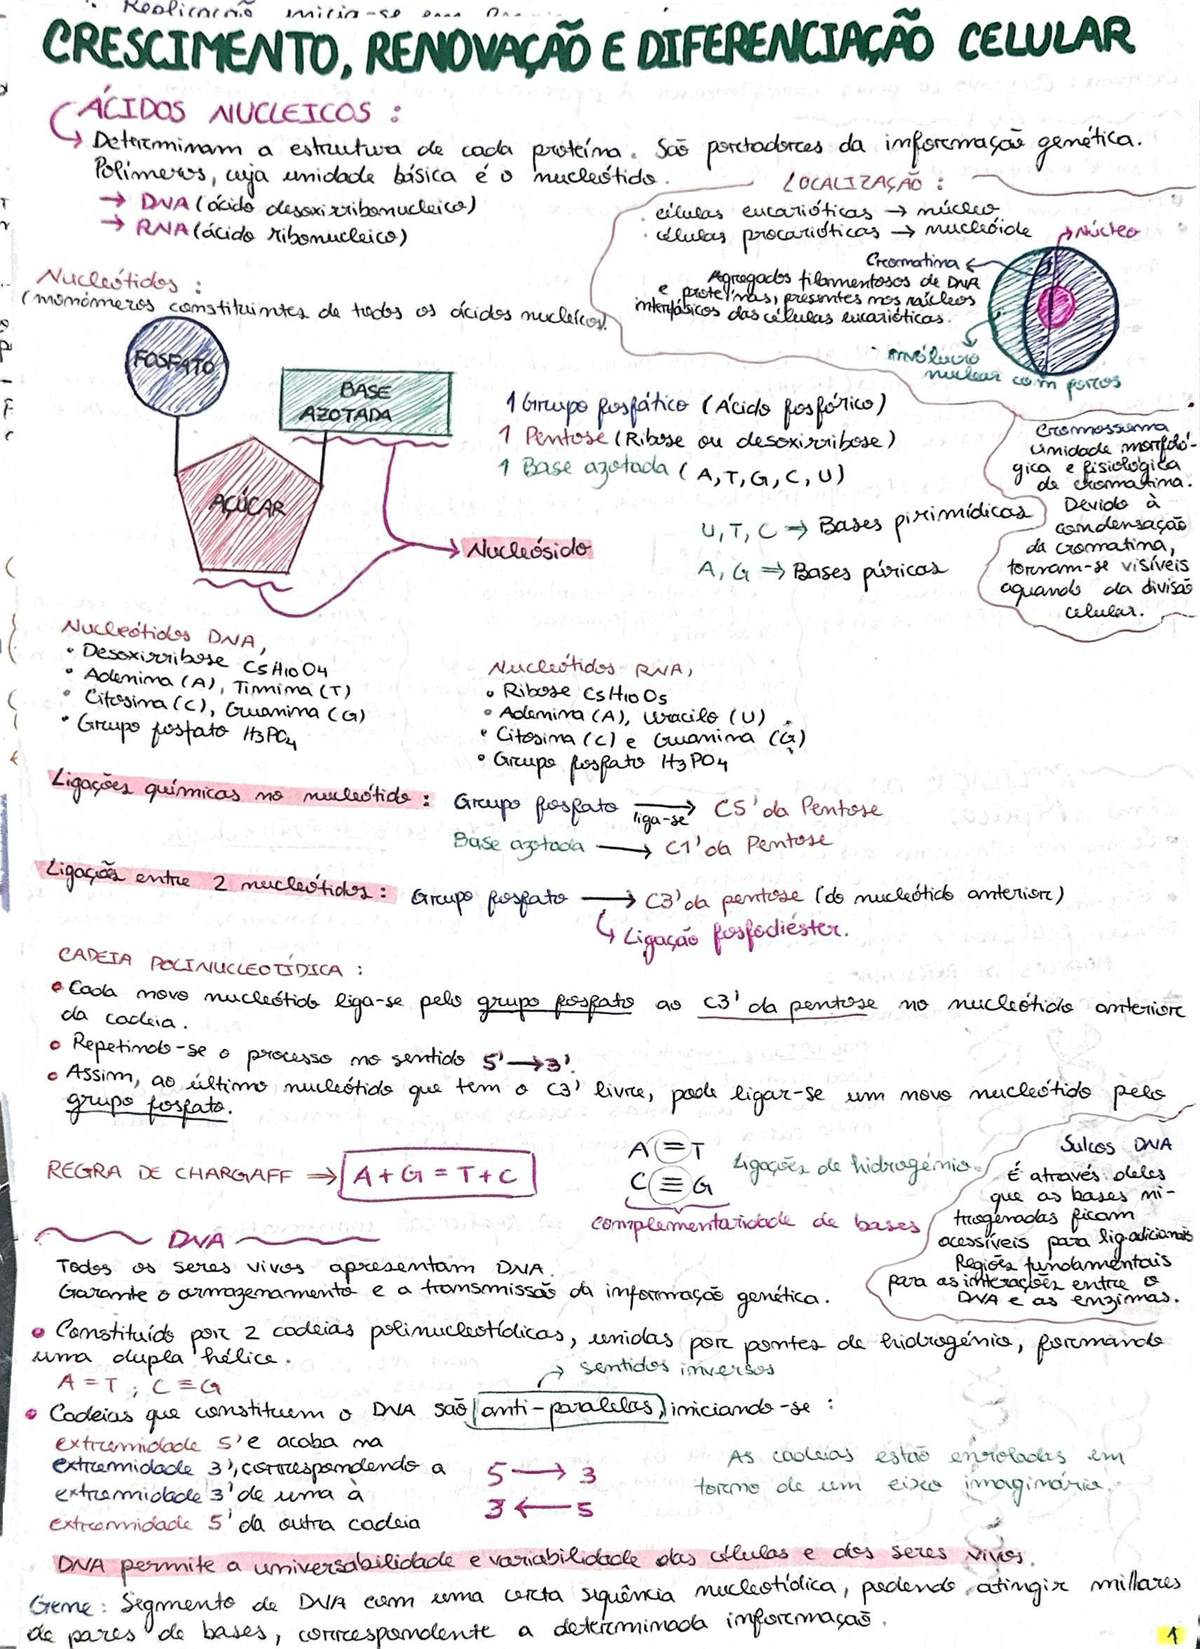 CRESCIMENTO, RENOVAÇÃO E DIFERENCIAÇÃO CELULAR
ÁCIDOS NUCLEICOS :
Determinam a estrutura de cada proteína. São portadores da informação genética.
Polímeros, cuja unidade básica é o nucleótido.
→ DNA (ácido desoxirribonucleico)
→ RNA (ácido ribonucleico)
LOCALIZAÇÃO :
. células eucarióticas → núcleo
. células procarióticas → nucleóide
Núcleo
Cromatina
Agregados filamentosos de DNA
e proteínas, presentes nos núcleos
interfásicos das células eucarióticas.
invólucro
nuclear com poros
Nucleótidos :
(monómeros constituintes de todos os ácidos nucleicos)
FOSFATO
BASE
AZOTADA
AÇÚCAR
Nucleósido
1 Grupo fosfático (Ácido fosfórico)
1 Pentose (Ribose ou desoxirribose)
1 Base azotada (A,T,G,C,U)
U, T, C → Bases pirimídicas
A, G ⇒ Bases púricas
Cromossuma
Unidade morfoló-
gica e fisiológica
da cromatina.
Devido à
condensação
da cromatina,
tornam-se visíveis
aquando da divisão
celular.
Nucleótidos DNA,
• Desoxirribose C5H10O4
• Adenina (A), Timina (T)
• Citosina (C), Guanina (G)
• Grupo fosfato H3PO4
Nucleótidos RNA,
• Ribose C5H10O5
• Adenina (A), Uracilo (U)
• Citosina (C) e Guanina (G)
• Grupo fosfato H3PO4
Ligações químicas no nucleótido : Grupo fosfato → liga-se C5' da Pentose
Base azotada → C1' da Pentose
Ligações entre 2 nucleótidos : Grupo fosfato → C3' da pentose (do nucleótido anterior)
Ligação fosfodiéster.
CADEIA POLINUCLEOTÍDICA :
• Cada novo nucleótido liga-se pelo grupo fosfato ao C3' da pentose no nucleótido anterior
da cadeia.
• Repetindo-se o processo no sentido 5' → 3'.
• Assim, ao último nucleótido que tem o C3' livre, pode ligar-se um novo nucleótido pelo
grupo fosfato.
REGRA DE CHARGAFF ⇒ A+G = T+C
A = T
C ≡ G
Ligações de hidrogénio.
complementaridade de bases
Sulcos DNA
É através deles
que as bases ni-
trogenadas ficam
acessíveis para lig. adicionais
Regiões fundamentais
para as interações entre o
DNA e as enzimas.
DNA
Todos os seres vivos apresentam DNA.
Garante o armazenamento e a transmissão da informação genética.
• Constituído por 2 cadeias polinucleotídicas, unidas por pontes de hidrogénio, formando
uma dupla hélice.
A = T ; C ≡ G
sentidos inversos
• Cadeias que constituem o DNA são anti-paralelas, iniciando-se :
extremidade 5' e acaba na
extremidade 3', correspondendo a
extremidade 3' de uma à
extremidade 5' da outra cadeia
5 → 3
3 ← 5
As cadeias estão enroladas em
torno de um eixo imaginário.
DNA permite a universabilidade e variabilidade das células e dos seres vivos.
Gene : Segmento de DNA com uma certa sequência nucleotídica, podendo atingir milhares
de pares de bases, correspondente a determinada informação.
1